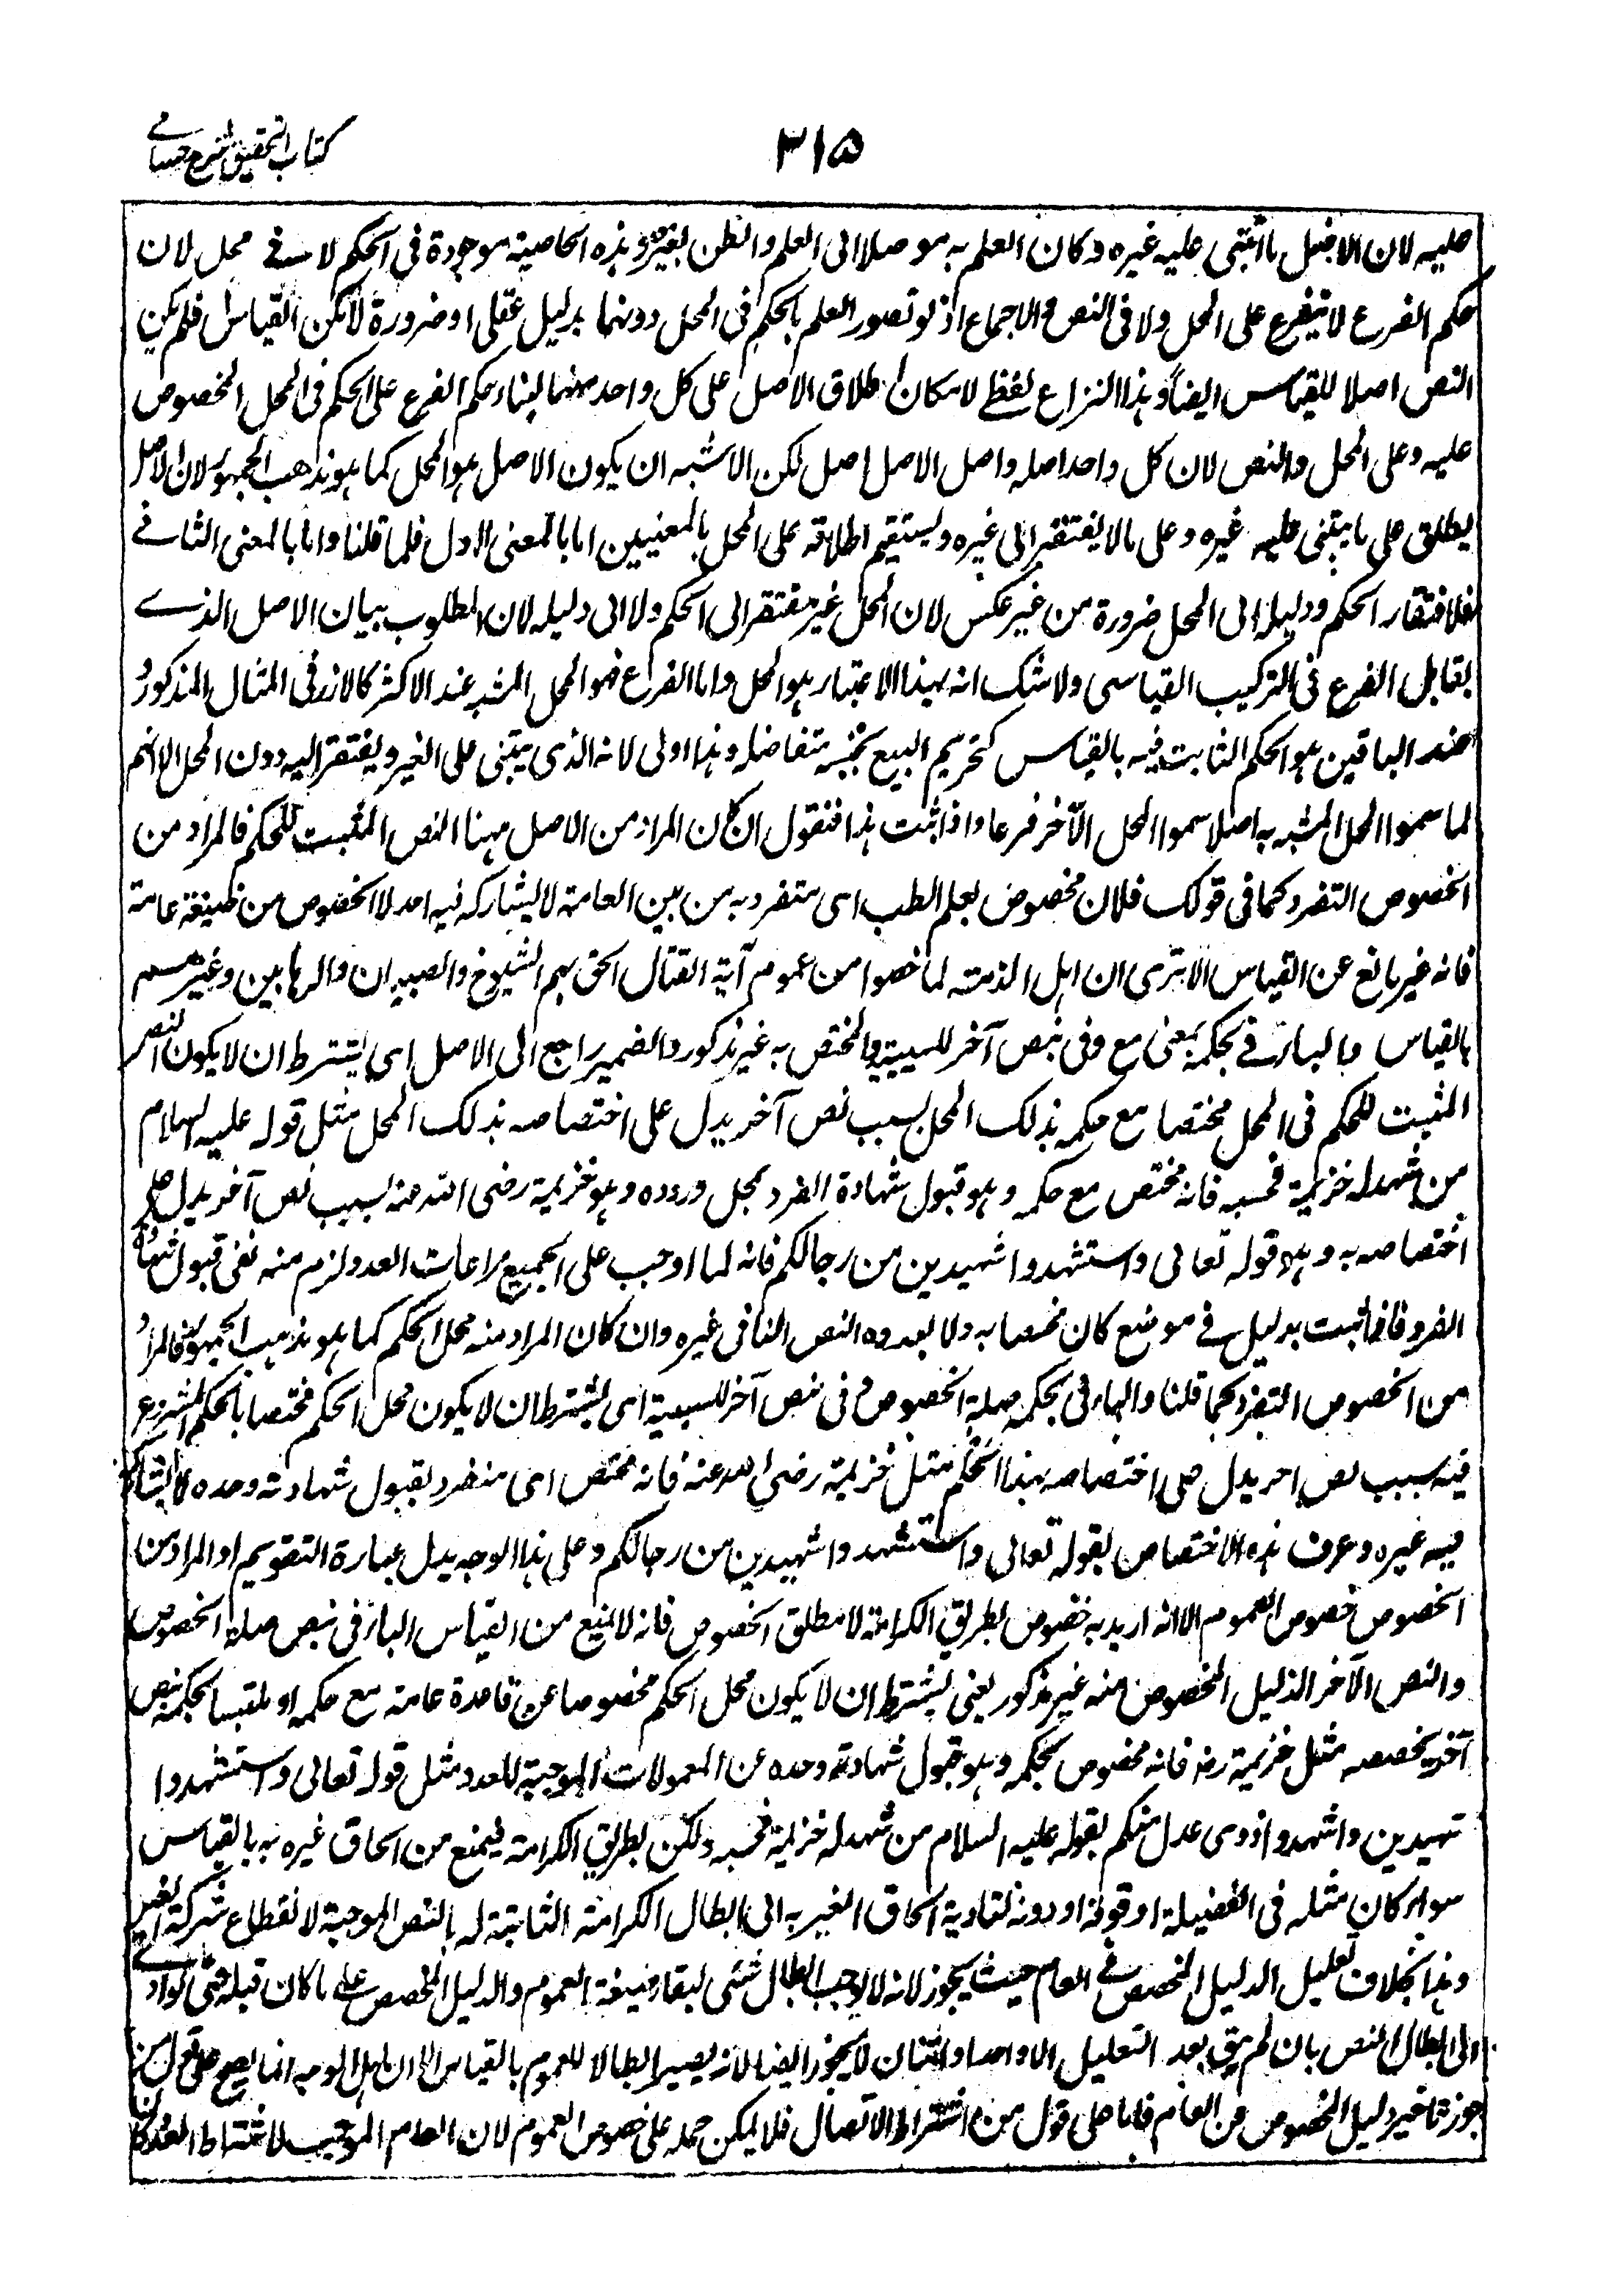 كتاب التحقيق شرح حسامي
٣١٥
عليه لان الاصل ما ابتنى عليه غيره وكان العلم به موصلا الى العلم والظن بغيره وهذه الخاصية موجودة في الحكم لا في محل لان
حكم الفرع لا يتفرع على المحل ولا في النص والاجماع اذ لو تصور العلم بالحكم في المحل دونهما بدليل عقلي او ضرورة لامكن القياس فلم يكن
النص اصلا للقياس ايضا وهذا النزاع لفظي لامكان اطلاق الاصل على كل واحد منهما لبناء حكم الفرع على الحكم في المحل المخصوص
عليه وعلى المحل والنص لان كل واحد اصله واصل الاصل اصل لكن الاشبه ان يكون الاصل هو المحل كما هو مذهب الجمهور لان الاصل
يطلق على ما يبتنى عليه غيره وعلى ما لا يفتقر الى غيره ويستقيم اطلاقه على المحل بالمعنيين اما بالمعنى الاول فلما قلنا واما بالمعنى الثاني
فلافتقار الحكم ودليله الى المحل ضرورة من غير عكس لان المحل غير مفتقر الى الحكم ولا الى دليله لان المطلوب بيان الاصل الذي
يقابل الفرع في التركيب القياسي ولا شك انه بهذا الاعتبار هو المحل واما الفرع فهو المحل المشبه عند الاكثر كالارز في المثال المذكور و
عند الباقين هو الحكم الثابت فيه بالقياس كتحريم البيع بجنسه متفاضلا وهذا اولى لانه الذي يبتنى على الغير ويفتقر اليه دون المحل الا انهم
لما سموا المحل المشبه به اصلا سموا المحل الآخر فرعا واذا ثبت هذا فنقول ان كان المراد من الاصل ههنا النص المثبت للحكم فالمراد من
الخصوص التفرد كما في قولك فلان مخصوص بعلم الطب اى متفرد به من بين العامة لا يشاركه فيه احد لا الخصوص من صيغة عامة
فانه غير مانع عن القياس الا ترى ان اهل الذمة لما خصوا من عموم آية القتال الحق بهم الشيوخ والصبيان والرهابين وغيرهم
بالقياس والباء في بحكمه بمعنى مع وفي بنص آخر للسببية والمختص به غير مذكور والضمير راجع الى الاصل اى يشترط ان لا يكون النص
المثبت للحكم في المحل مختصا مع حكمه بذلك المحل بسبب نص آخر يدل على اختصاصه بذلك المحل مثل قوله عليه السلام
من شهد له خزيمة فحسبه فانه مختص مع حكمه وهو قبول شهادة الفرد بمحل وروده وهو خزيمة رضى الله عنه بسبب نص آخر يدل على
اختصاصه به وهو قوله تعالى واستشهدوا شهيدين من رجالكم فانه لما اوجب على الجميع مراعات العدد لزم منه نفى قبول شهادة
الفرد فاذا ثبت بدليل في موضع كان مختصا به ولا يعدوه النص النافي غيره وان كان المراد منه محل الحكم كما هو مذهب الجمهور فالمراد
من الخصوص التفرد كما قلنا والباء في بحكمه صلة الخصوص وفي بنص آخر للسببية اى يشترط ان لا يكون محل الحكم مختصا بالحكم المشروع
فيه بسبب نص آخر يدل على اختصاصه بهذا الحكم مثل خزيمة رضى الله عنه فانه مختص اى متفرد بقبول شهادته وحده لا يشاركه
فيه غيره وعرف هذه الاختصاص بقوله تعالى واستشهدوا شهيدين من رجالكم وعلى هذا الوجه يدل عبارة التقويم او المراد من
الخصوص خصوص العموم الا انه اريد به خصوص بطريق الكرامة لا مطلق الخصوص فانه لا يمنع من القياس الباء في بنص صلة الخصوص
والنص الآخر الدليل المخصوص منه غير مذكور يعنى يشترط ان لا يكون محل الحكم مخصوصا عن قاعدة عامة مع حكمه او ملتبسا بحكمه بنص
آخر يخصصه مثل خزيمة رضه فانه مخصوص بحكمه وهو قبول شهادته وحده عن العمومات الموجبة للعدد مثل قوله تعالى واستشهدوا
شهيدين واشهدوا ذوى عدل منكم بقوله عليه السلام من شهد له خزيمة فحسبه ولكن بطريق الكرامة فيمنع من الحاق غيره به بالقياس
سواء كان مثله في الفضيلة او فوقه او دونه لتادية الحاق الغير به الى ابطال الكرامة الثابتة له بالنص الموجبة لانقطاع شركة الغير
وهذا بخلاف تعليل الدليل المخصص في العام حيث يجوز لانه لا يوجب ابطال شئى لبقاء صيغة العموم والدليل المخصص على ما كان قبله حتى لو ادى
الى ابطال النص بان لم يبق بعد التعليل الا واحد او اثنان لا يجوز ايضا لانه يصير ابطالا للعموم بالقياس الا ان هذا الوجه انما يصح على قول من
جوز تاخير دليل الخصوص من العام فاما على قول من اشترط الاتصال فلا يمكن حمله على خصوص العموم لان العام الموجب لاشتراط العدد كان